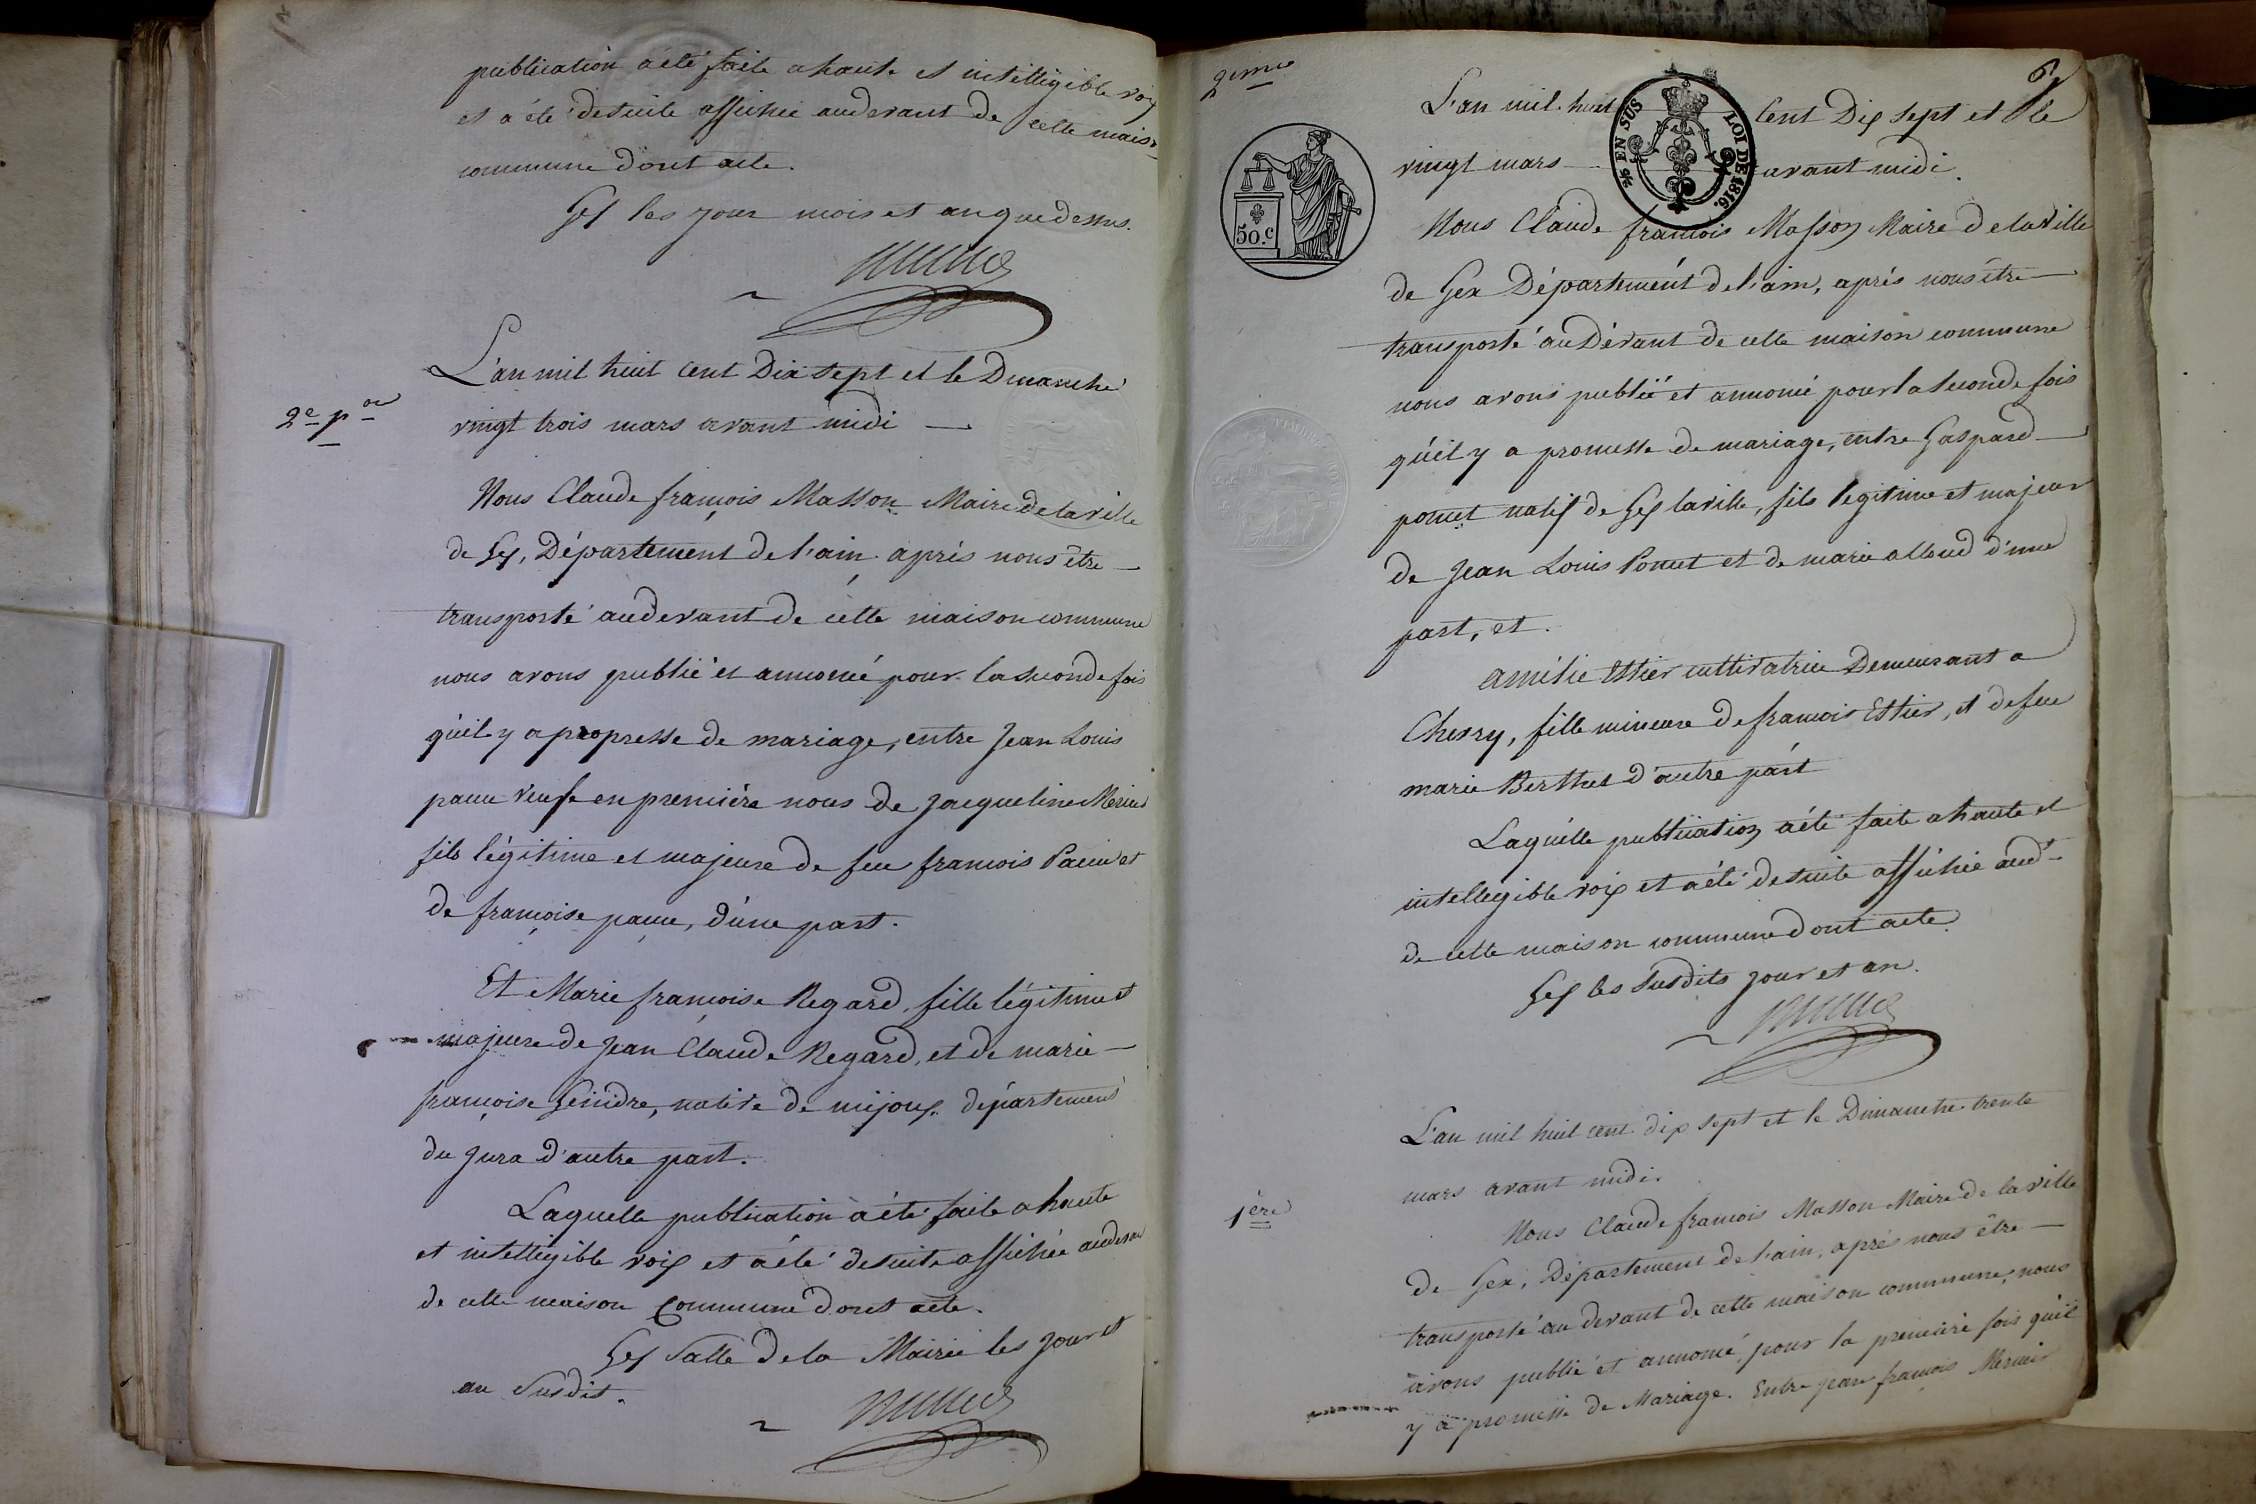 publication a été faite a haute et intelligible voix
et a été desuite affichée audevant de cette maison
commune dont acte.
Gex les jour mois et an que dessus.
2e pon
L'an mil huit cent Dix sept et le Dimanche
vingt trois mars avant midi
Nous Claude françois Masson Maire de la ville
de Gex, Département de l'ain après nous être
transporté audevant de cette maison commune
nous avons publié et annoncé pour la seconde fois
qu'il y a propresse de mariage, entre Jean Louis
veufe en première nous de Jacqueline
fils légitime et majeure de feu francois et
de françoise d'une part.
Et Marie françoise Regard, fille légitime et
majeure de Jean Claude Regard, et de marie
françoise native de mijoux département
du Jura d'autre part.
Laquelle publication a été faite a haute
et intelligible voix et a été desuite affichée audevant
de cette maison Commune dont acte.
Gex Salle de la Mairie les jour et
an Susdit.
2eme
6
L'an mil huit Cent Dix sept et le
vingt mars avant midi.
2/5 EN SUS LOI DE 1816.
50.c
Nous Claude francois Masson Maire de la Ville
de Gex Département de l'ain, après nous être
transporté audevant de cette maison commune
nous avons publié et annoncé pour la seconde fois
qu'il y a promesse de mariage, entre Gaspard
natif de Gex la ville, fils legitime et majeur
de Jean Louis et de marie d'une
part, et.
amélie Estier cultivatrice Demeurant a
Chevry, fille mineure de francois Estier, et de feu
marie Berthet d'autre part
Laquelle publication a été faite a haute et
intellegible voix et a été desuite affichée audt
de cette maison commune dont acte
Gex les Susdits jour et an.
L'an mil huit cent dix sept et le Dimanche trente
mars avant midi.
1ere
Nous Claude francois Masson Maire de la ville
de Gex, Département de l'ain, après nous être
transporté au devant de cette maison commune, nous
avons publié et annoncé pour la première fois qu'il
y a promesse de Mariage. Entre jean françois